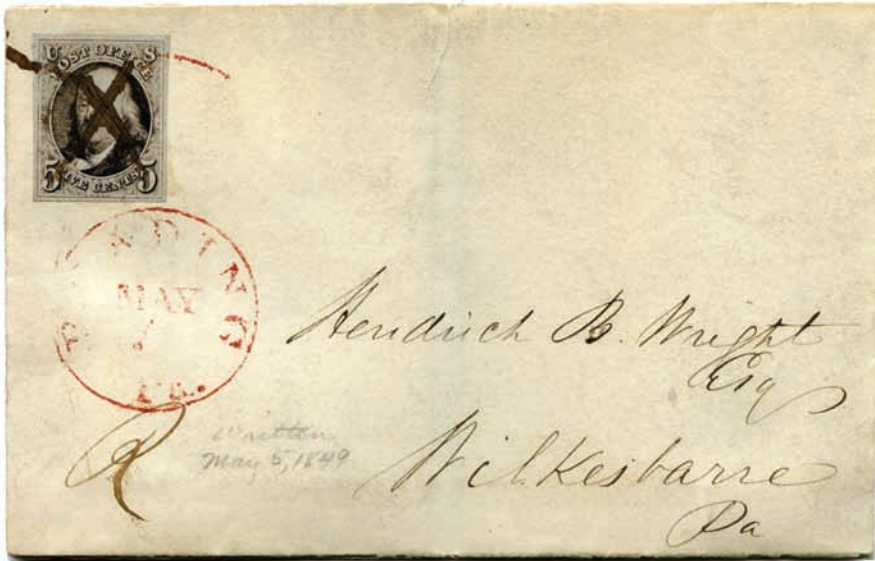 U S
POST OFFICE
5 FIVE CENTS 5
READING
MAY
PA.
Hendrick B. Wright
Esq
Wilkesbarre
Pa
R
Written
May 5, 1849